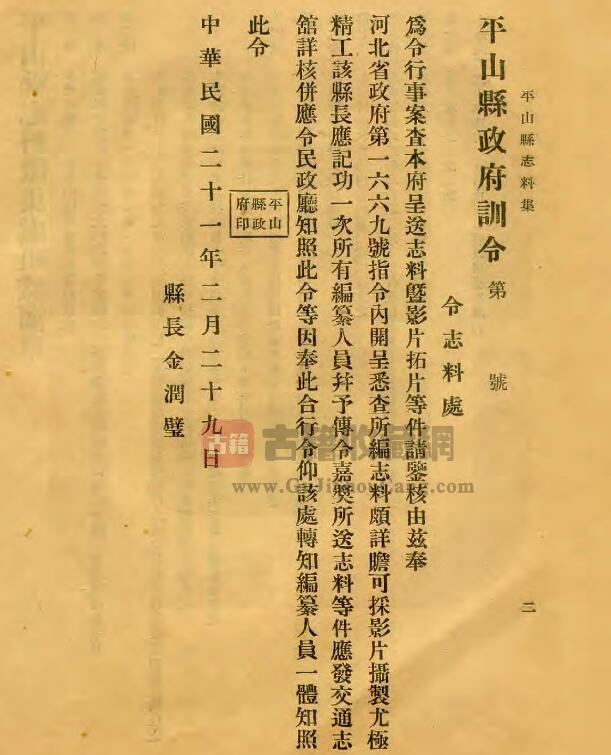 平山縣志料集
二
平山縣政府訓令 第 號
令志料處
爲令行事案查本府呈送志料曁影片拓片等件請鑒核由兹奉
河北省政府第一六六九號指令內開呈悉查所編志料頗詳贍可採影片攝製尤極
精工該縣長應記功一次所有編纂人員幷予傳令嘉獎所送志料等件應發交通志
舘詳核併應令民政廳知照此令等因奉此合行令仰該處轉知編纂人員一體知照
此令
平山
縣政
府印
中華民國二十一年二月二十九日
縣長金潤璧
古籍
古籍收藏網